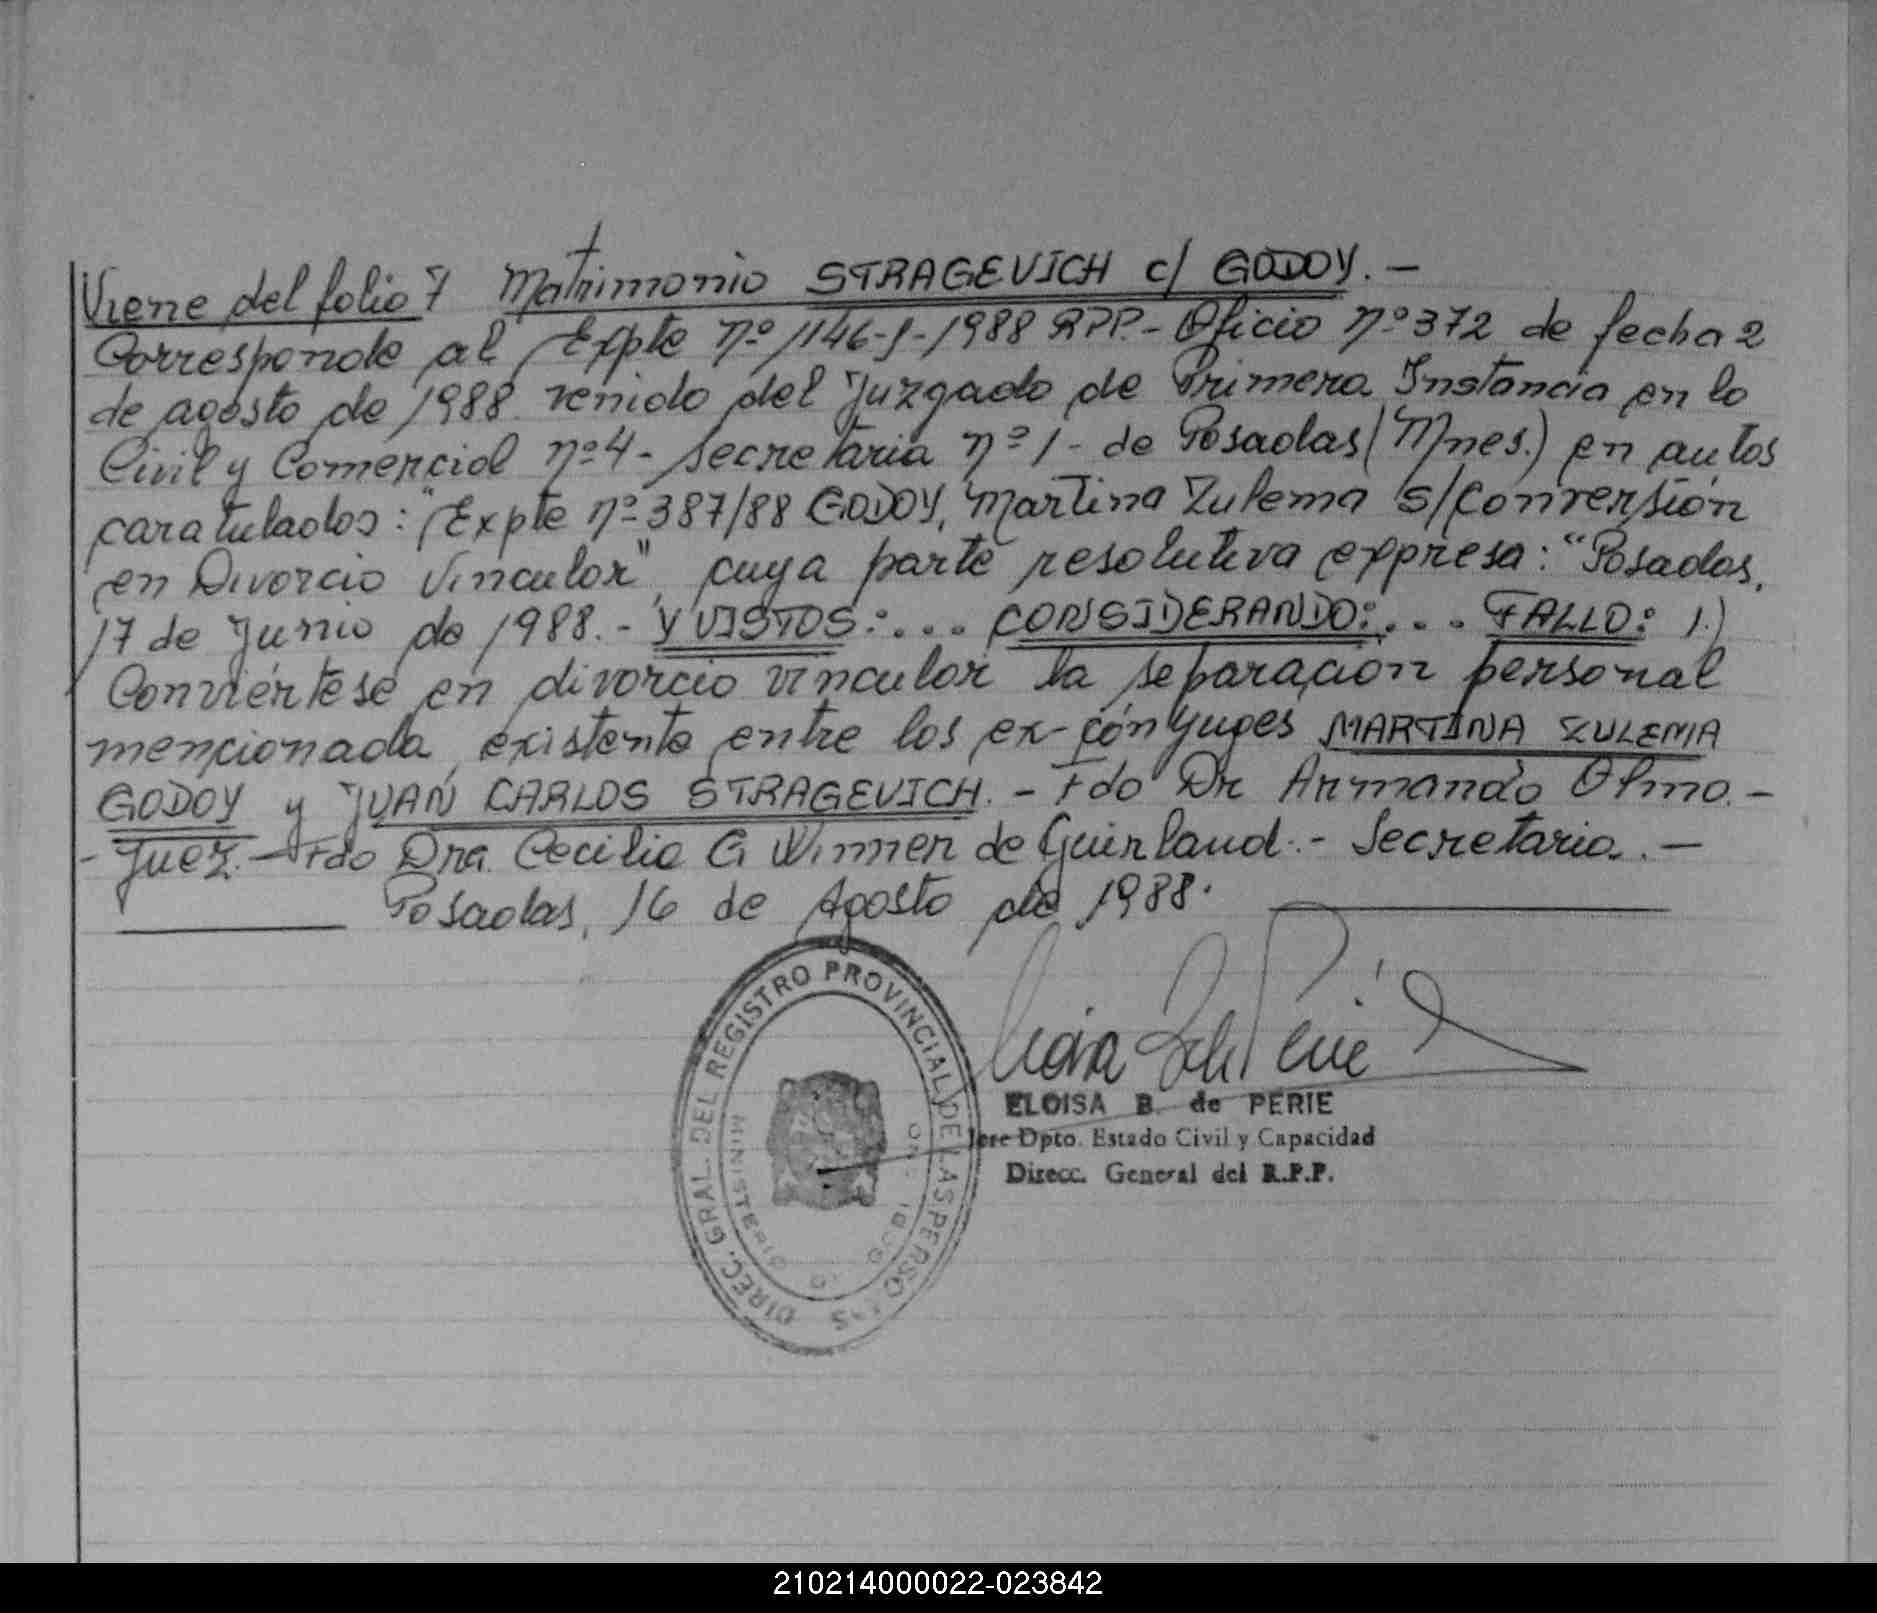 Viene del folio 7 Matrimonio STRAGEVICH c/ GODOY. -
Corresponde al Expte Nº 1146-J-1988 RPP.- Oficio Nº 372 de fecha 2
de agosto de 1988 venido del Juzgado de Primera Instancia en lo
Civil y Comercial nº 4 - Secretaria nº 1 - de Posadas (Mnes.) en autos
caratulados: "Expte nº 387/88 GODOY, Martina Zulema S/Conversión
en Divorcio Vincular", cuya parte resolutiva expresa: "Posadas,
17 de Junio de 1988. - Y VISTOS: ... CONSIDERANDO: ... FALLO: 1.)
Conviértese en divorcio vincular la separación personal
mencionada, existente entre los ex-cónyuges MARTINA ZULEMA
GODOY y JUAN CARLOS STRAGEVICH. - Fdo Dr Armando Olmo. -
- Juez. - Fdo Dra. Cecilia G de - Secretaria. -
Posadas, 16 de Agosto de 1988.
DIREC. GRAL. DEL REGISTRO PROVINCIAL DE LAS PERSONAS
MINISTERIO
ELOISA B. de PERIE
Jefe Dpto. Estado Civil y Capacidad
Direcc. General del R.P.P.
210214000022-023842